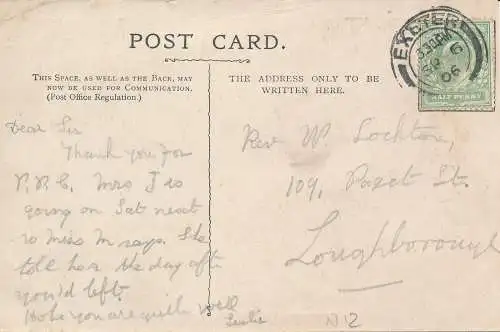 POST CARD.
THIS SPACE, AS WELL AS THE BACK, MAY
NOW BE USED FOR COMMUNICATION.
(Post Office Regulation.)
THE ADDRESS ONLY TO BE
WRITTEN HERE.
EXETER
SP 6
06
HALF PENNY
Dear Sir
Thank you for
P.P.C. Mrs J is
going on Sat next
so Miss M says. She
told her the day aft
you'd left.
Hope you are quite well
Leslie
Rev W. Lockton,
109, Paget St.
Loughborough
N12